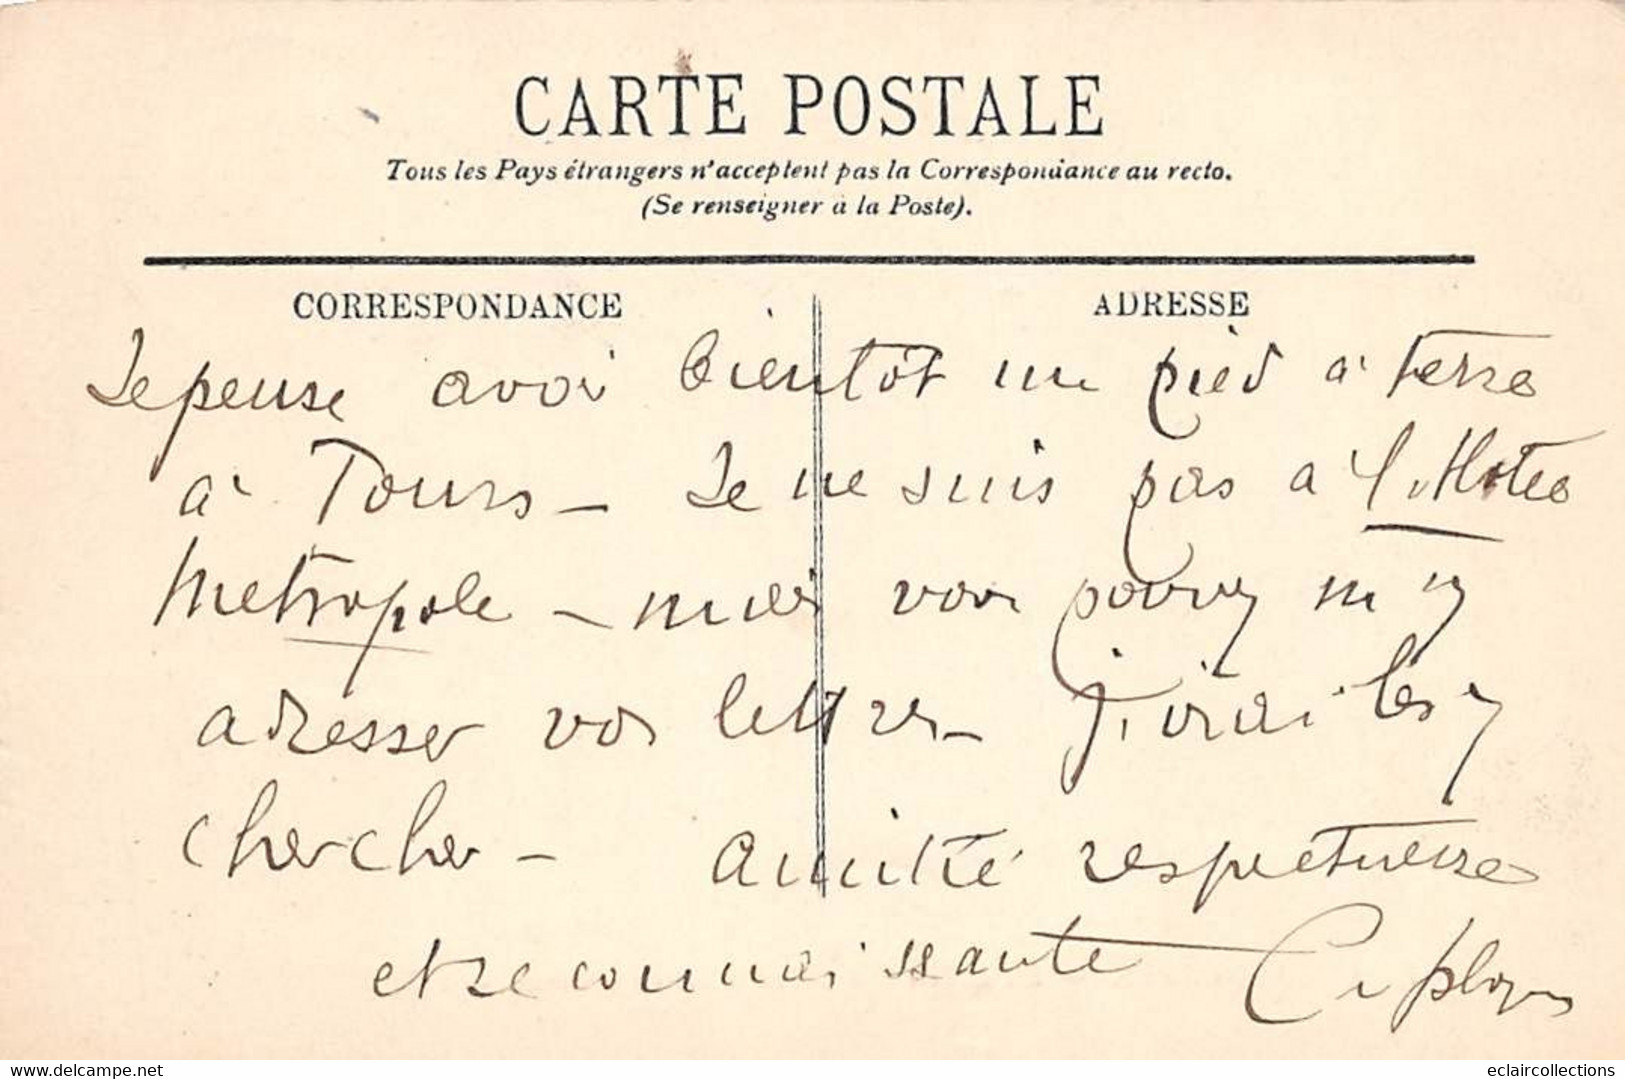 CARTE POSTALE
Tous les Pays étrangers n'acceptent pas la Correspondance au recto.
(Se renseigner à la Poste).
CORRESPONDANCE
ADRESSE
Je pense avoir bientôt un pied à terre
à Tours – Je ne suis pas à l'Hotel
Metropole – mais vous pouvez m'y
adresser vos lettres – j'irai les y
chercher – amitié respectueuse
et reconnaissante
delcampe.net
eclaircollections